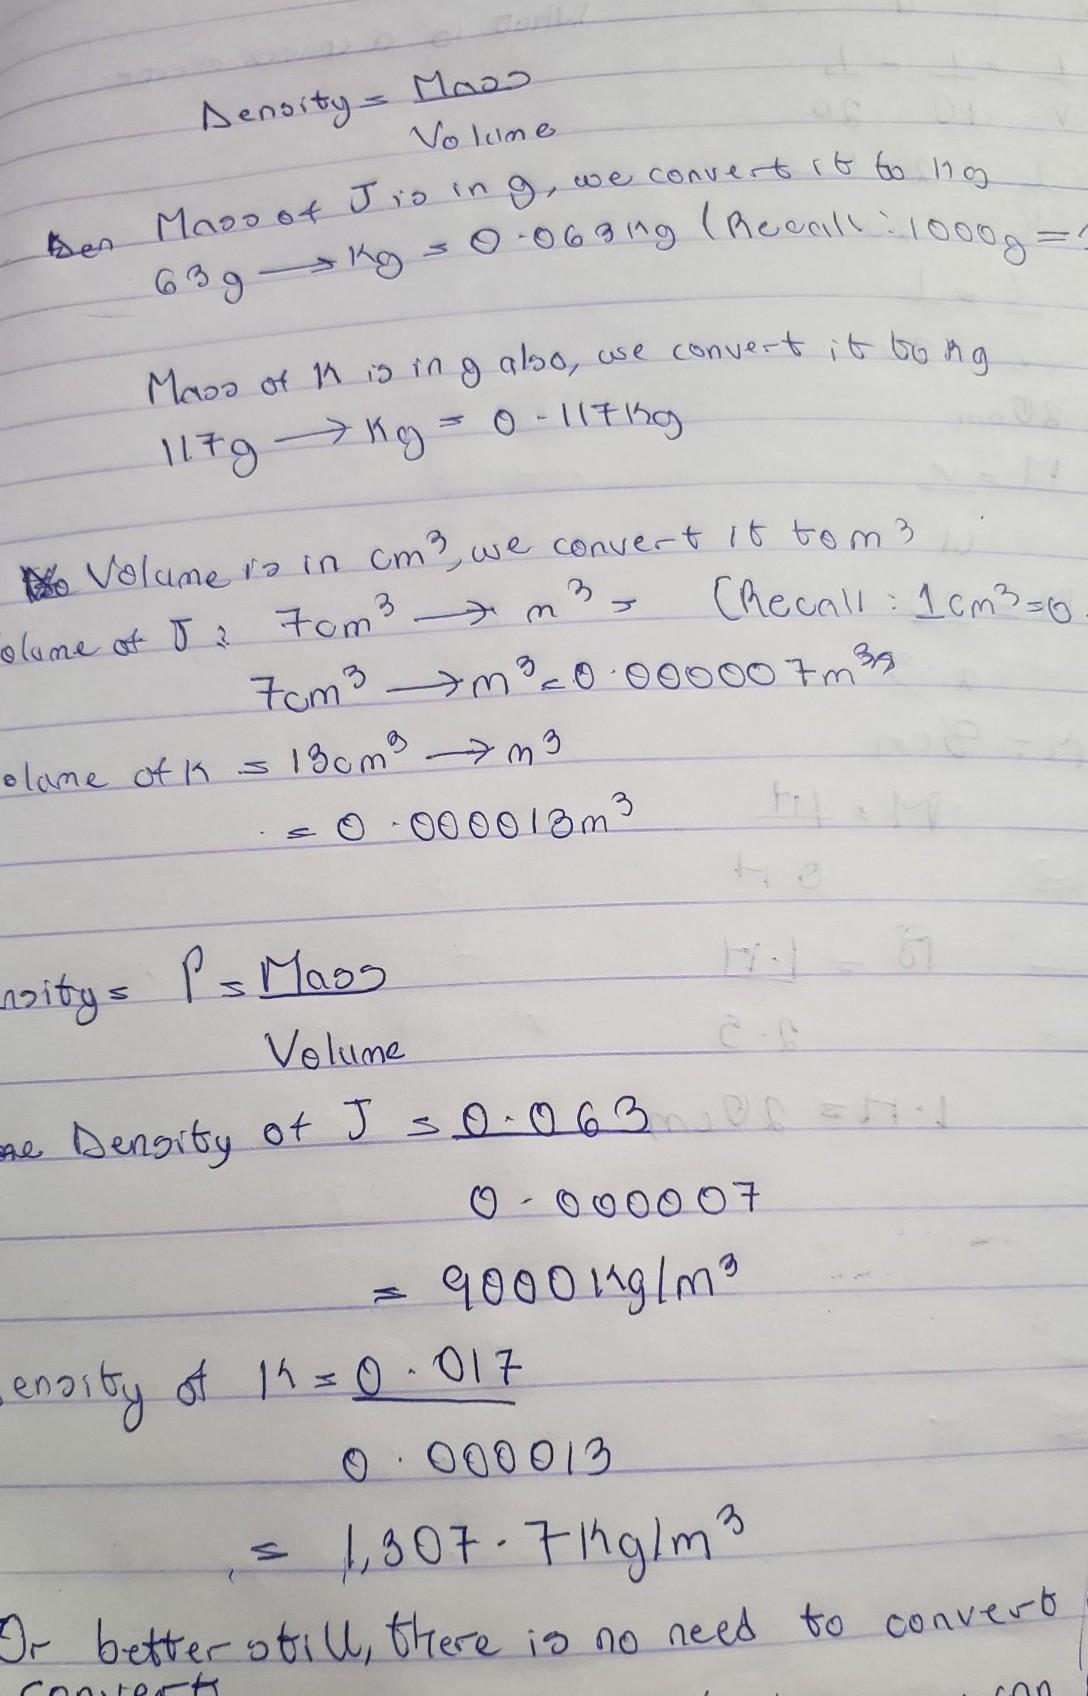 Density = Mass
Volume
Mass of J is in g, we convert it to Kg
63g → Kg = 0.063Kg (Recall: 1000g =
Mass of K is in g also, we convert it to Kg
117g → Kg = 0.117Kg
Volume is in cm³, we convert it to m³
olume of J: 7cm³ → m³ = (Recall: 1cm³=0
7cm³ → m³ = 0.000007m³
olume of K = 13cm³ → m³
= 0.000013m³
nsity = ρ = Mass
Volume
Density of J = 0.063
0.000007
= 9000Kg/m³
ensity of K = 0.017
0.000013
= 1,307.7Kg/m³
Or better still, there is no need to convert